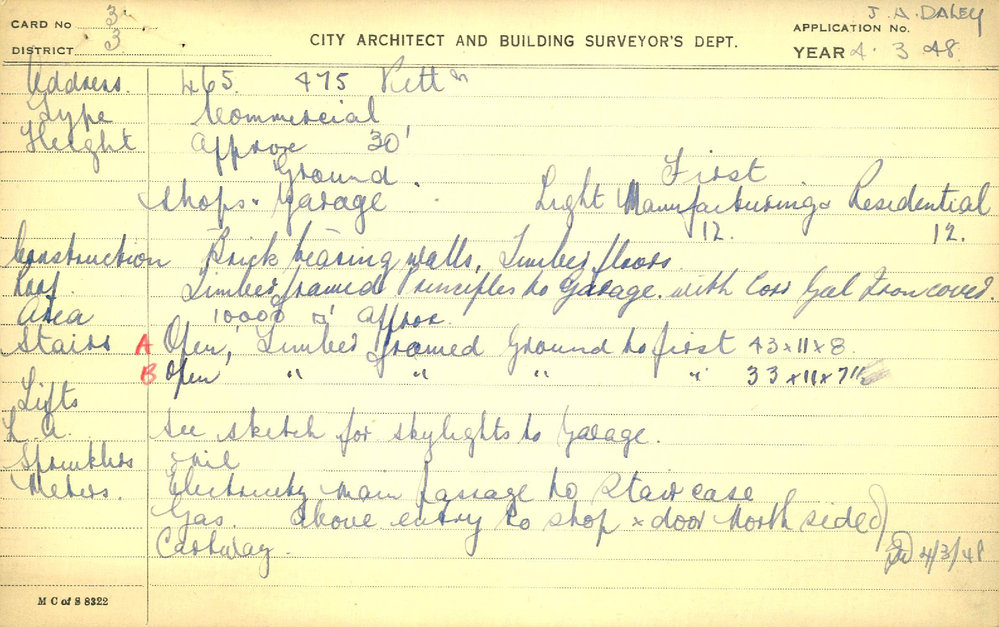 J. A. DALEY
CARD No 3. APPLICATION No.
DISTRICT 3 CITY ARCHITECT AND BUILDING SURVEYOR'S DEPT. YEAR 4. 3 48.
Address. 465. 475 Pitt
Type Commercial
Height Approx 30'
Ground. First
Shops & Garage Light Manufacturing & Residential
12. 12.
Construction Brick bearing walls, Timber floors.
Roof. Timber framed Principles to Garage. with Corr Gal Iron cover.
Area 10000 □' approx.
Stairs A Open, Timber framed Ground to first 43 x 11 x 8.
B Open " " " " 33 x 11 x 7½
Lifts
L. A. See sketch for skylights to Garage.
Sprinklers nil
Meters. Electricity main passage to Stair case
Gas. above entry to shop & door North side
Cartway. 4/3/48
M C of S 8322